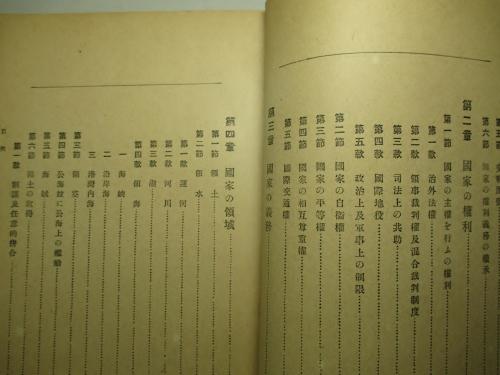 第六節 國家の權利義務の繼承
第二章 國家の權利
第一節 國家の主權を行ふの權利
第一款 治外法權
第二款 領事裁判權及混合裁判制度
第三款 司法上の共助
第四款 國際地役
第五款 政治上及軍事上の制限
第二節 國家の自衞權
第三節 國家の平等權
第四節 國家の相互尊重權
第五節 國際交通權
第三章 國家の義務
第四章 國家の領域
第一節 領土
第二節 領水
第一款 運河
第二款 河川
第三款 湖
第四款 領海
一 海峽
二 沿岸海
三 港灣內海
第三節 領空
第四節 公海並に公海上の船舶
第五節 海峽
第六節 領土の取得
第一款 割讓及任意的倂合